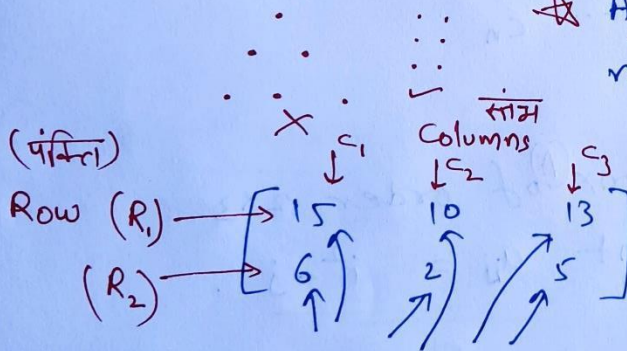 H
r
स्तंभ
(पंक्ति)
Columns
C₁ C₂ C₃
Row (R₁) 15 10 13
(R₂) 6 2 5